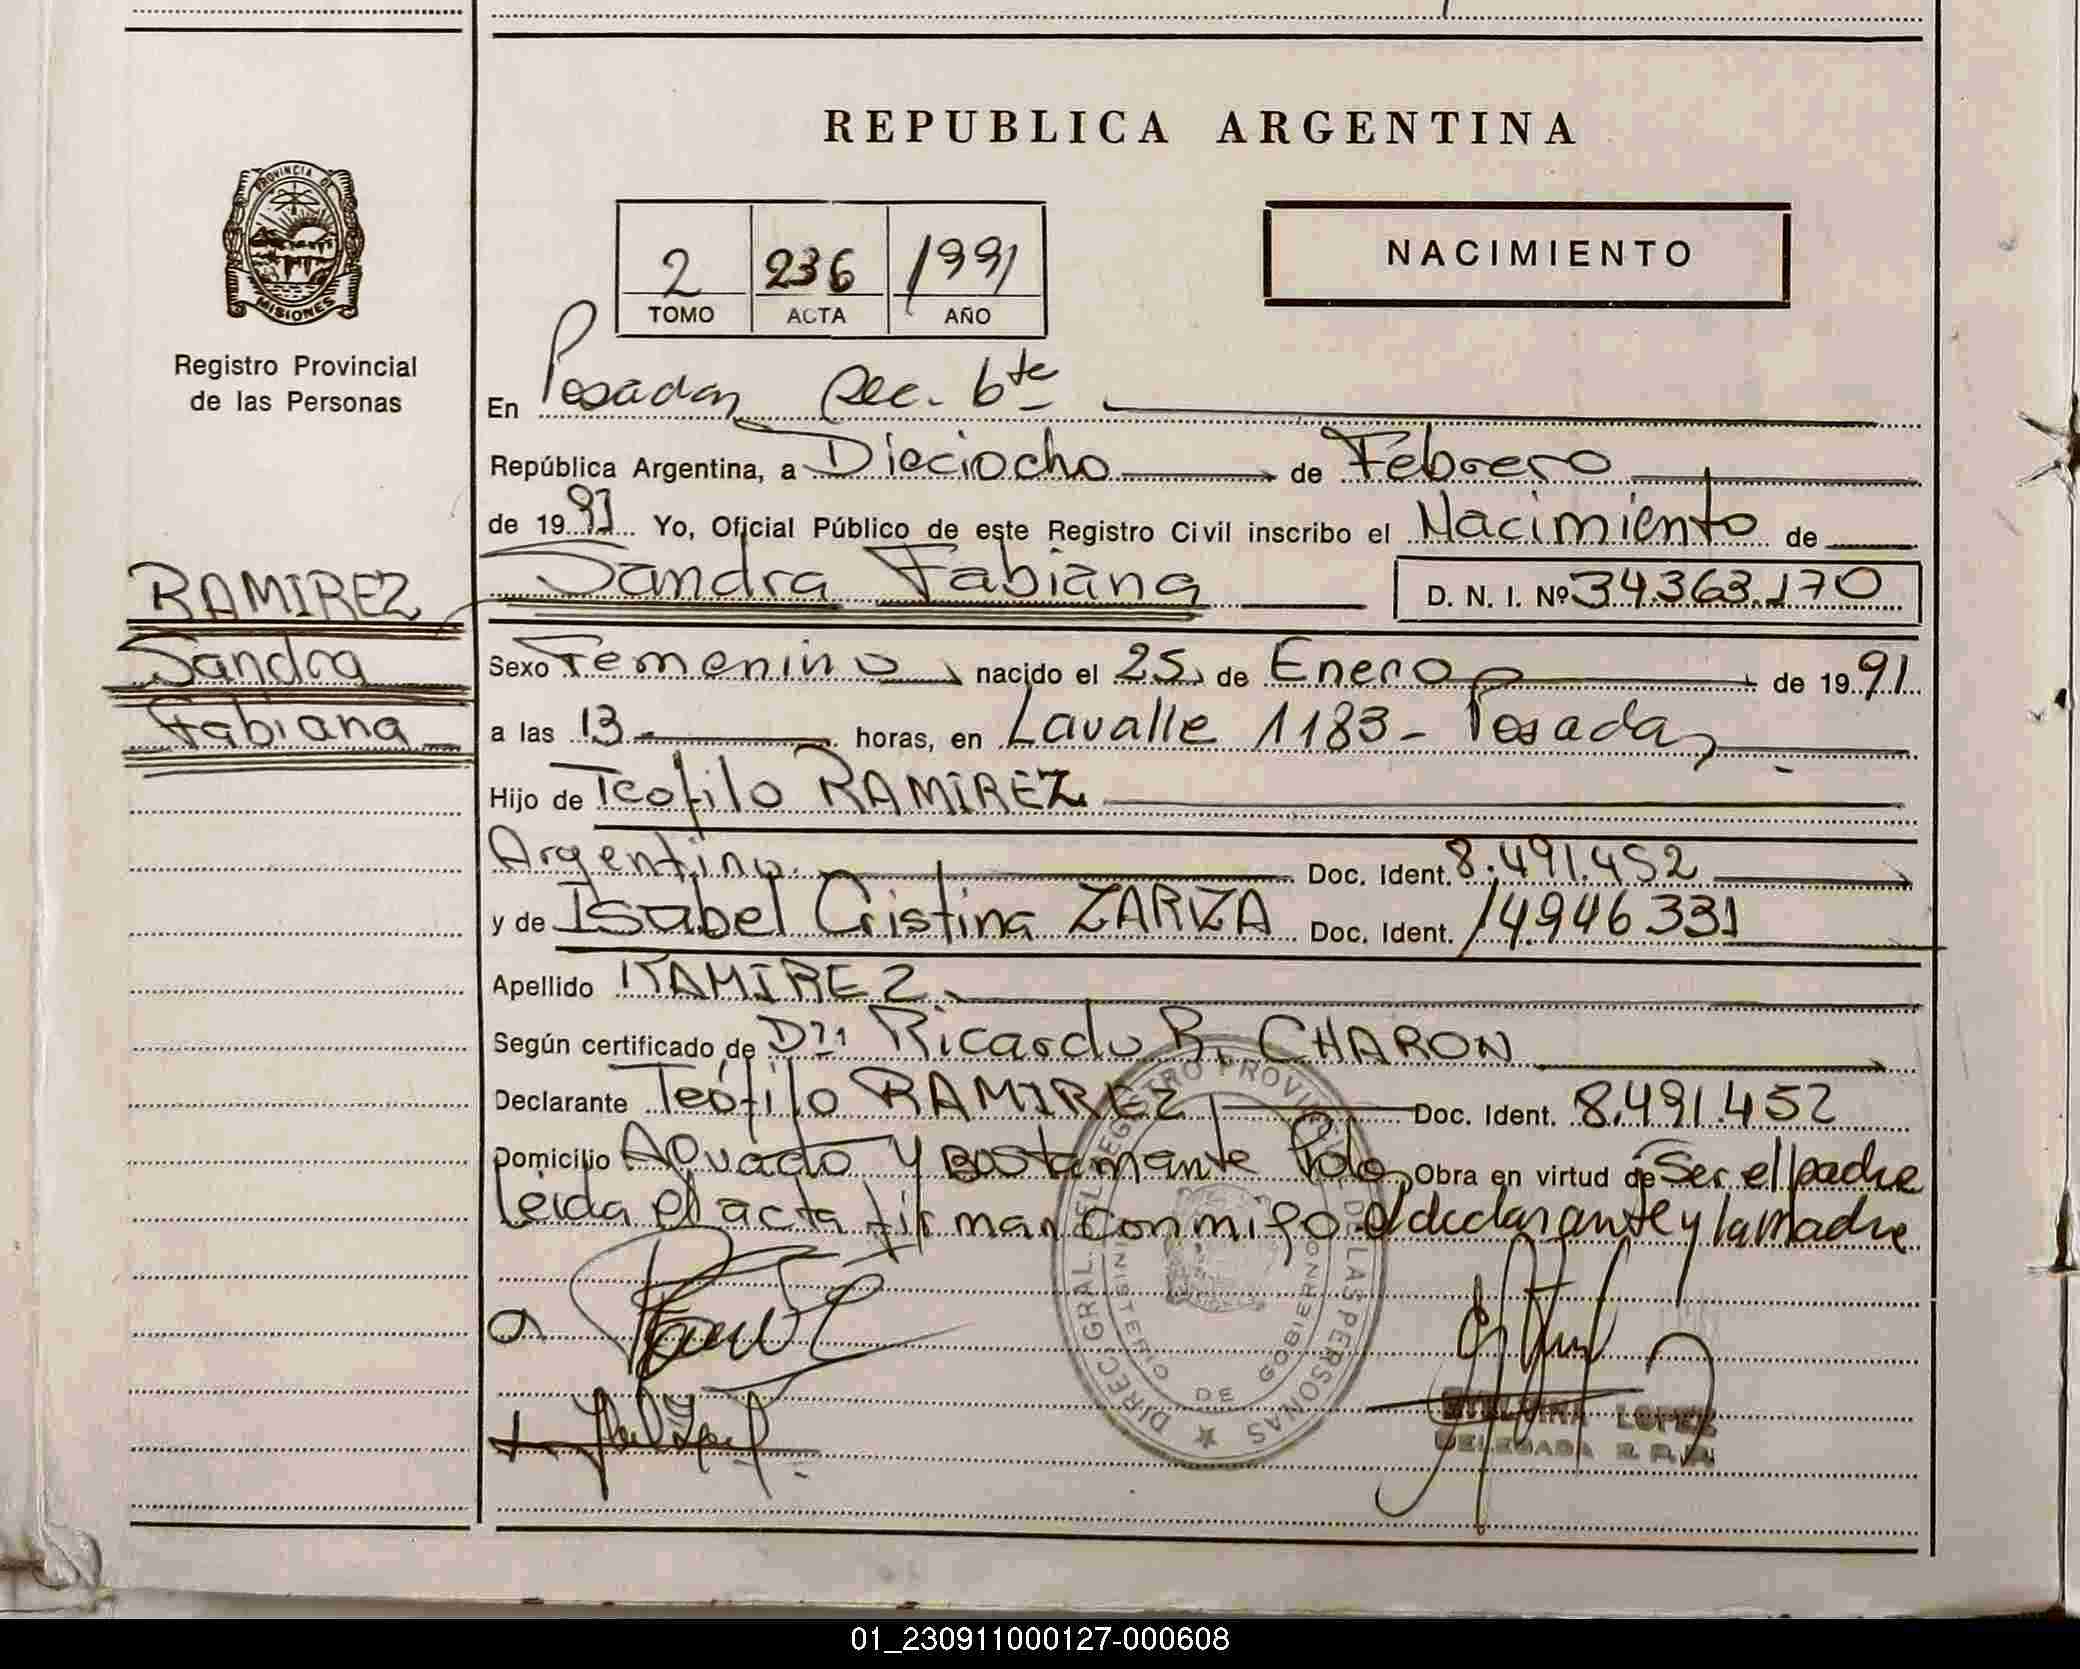 REPUBLICA ARGENTINA
PROVINCIA DE
MISIONES
Registro Provincial
de las Personas
2 236 1991
TOMO ACTA AÑO
NACIMIENTO
En Posadas Sec. 6ta
República Argentina, a Dieciocho de Febrero
de 1991 Yo, Oficial Público de este Registro Civil inscribo el Nacimiento de
RAMIREZ
Sandra
Fabiana
Sandra Fabiana D. N. I. Nº 34.363.170
Sexo Femenino nacido el 25 de Enero de 1991
a las 13 horas, en Lavalle 1183 - Posadas
Hijo de Teofilo RAMIREZ
Argentino Doc. Ident. 8.491.452
y de Isabel Cristina ZARZA Doc. Ident. 14946331
Apellido RAMIREZ
Según certificado de Dr. Ricardo R. CHARON
Declarante Teófilo RAMIREZ Doc. Ident. 8.491.452
Domicilio y Bustamante Pdas Obra en virtud de Ser el padre
Leida el acta firman conmigo el declarante y la madre
DIREC. GRAL. DEL REGISTRO PROVINCIAL DE LAS PERSONAS
MINISTERIO DE GOBIERNO
LOPEZ
DELEGADA R. P. P.
01_230911000127-000608